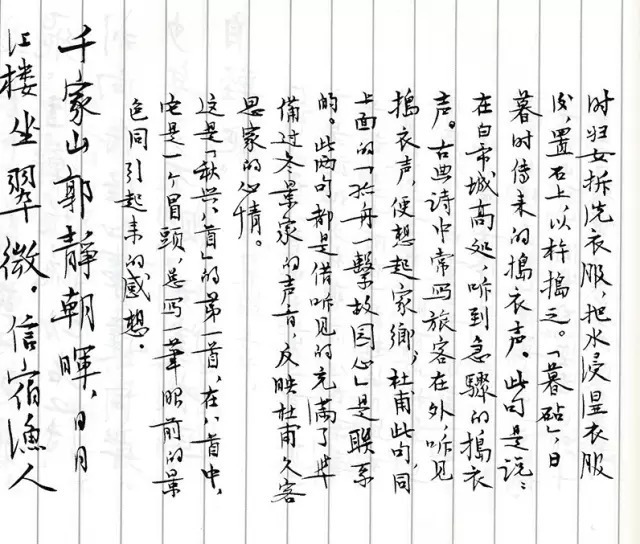 时妇女拆洗衣服，把水浸湿衣服
后，置石上，以杵捣之。「暮砧」，日
暮时传来的捣衣声。此句是说：
在白帝城高处，听到急骤的捣衣
声。古典诗中常写旅客在外，听见
捣衣声，便想起家乡，杜甫此句，同
上面的「孤舟一繫故园心」是联系
的。此两句都是借听见的充满了
备过冬景象的声音，反映杜甫久客
思家的心情。
这是「秋兴八首」的第一首，在八首中，
它是一个冒头，总写一笔眼前的景
色同引起来的感想。
千家山郭静朝晖，日日
江楼坐翠微。信宿渔人